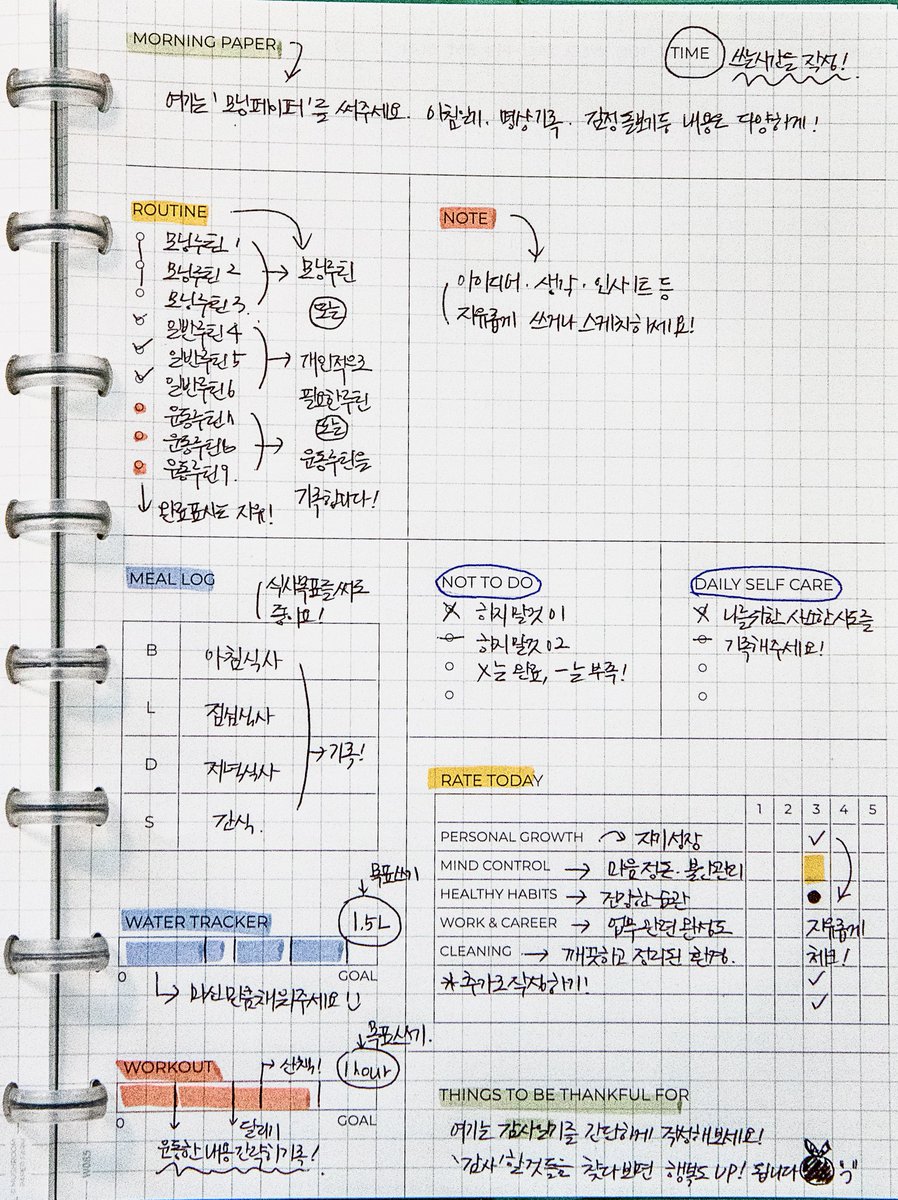 MORNING PAPER
TIME 쓰는시간을 작성!
여기는 '모닝페이퍼'를 써주세요. 아침일기. 명상기록. 감정돌보기등 내용은 다양하게!
ROUTINE
모닝루틴 1
모닝루틴 2
모닝루틴 3.
일반루틴 4
일반루틴 5
일반루틴 6
운동루틴
운동루틴 8
운동루틴 9.
모닝루틴
오늘
개인적으로
필요한루틴
오늘
운동루틴을
기록합니다!
완료표시는 자유!
NOTE
아이디어 · 생각 · 인사이트 등
자유롭게 쓰거나 스케치하세요!
MEAL LOG
식사목표를써도
좋아요!
B 아침식사
L 점심식사
D 저녁식사
S 간식.
기록!
NOT TO DO
하지말것 01
하지말것 02
X는 완료, -는 부족!
DAILY SELF CARE
나를위한 사소한시도를
기록해주세요!
RATE TODAY
1 2 3 4 5
PERSONAL GROWTH 자기성장
MIND CONTROL 마음정돈 · 불안관리
HEALTHY HABITS 건강한습관
WORK & CAREER 업무관련 완성도
CLEANING 깨끗하고 정리된 환경.
*추가로작성하기!
자유롭게
체크!
목표쓰기
WATER TRACKER 1.5L
0 GOAL
마신만큼채워주세요
목표쓰기.
WORKOUT 산책! 1 hour
0 GOAL
달리기
운동한 내용간략히기록!
THINGS TO BE THANKFUL FOR
여기는 감사일기를 간단하게 작성해보세요!
'감사'할것들을 찾다보면 행복도 UP! 됩니다